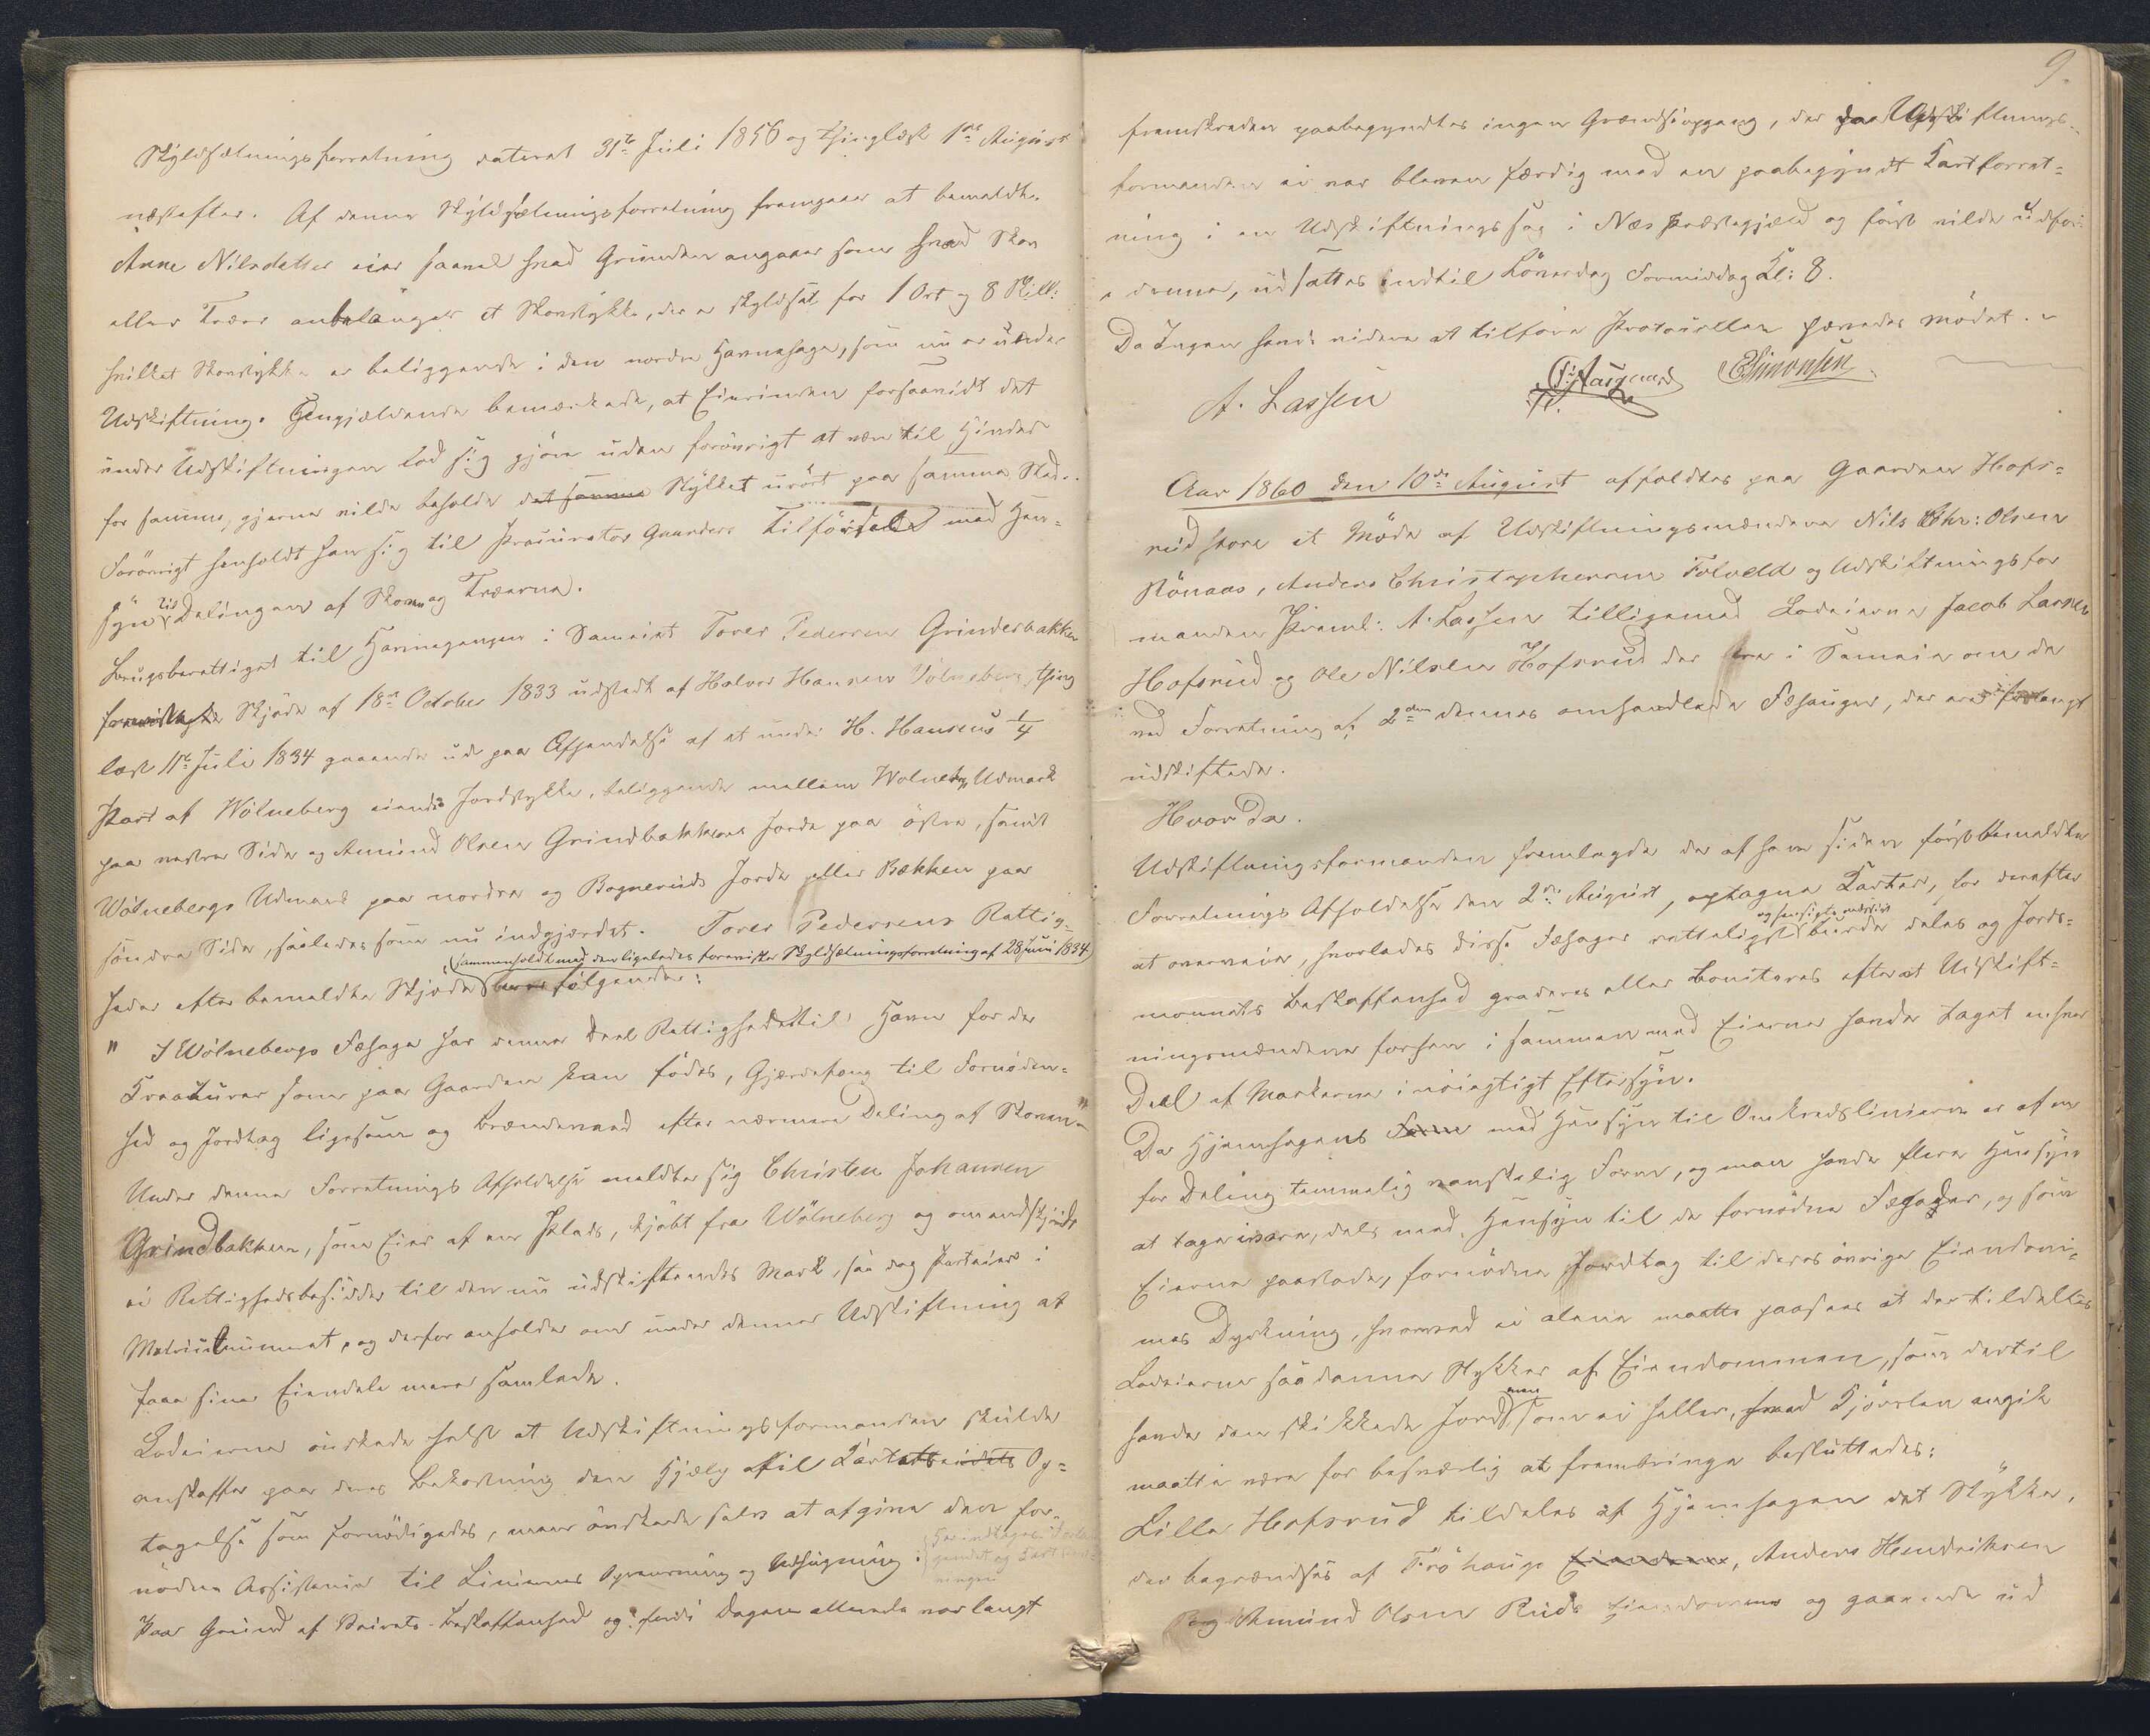 Skyldsætningsforretning dateret 31te Juli 1856 og thinglæst 1ste August
næstefter. Af denne Skyldsætningsforretning fremgaaer at bemeldte
Anne Nilsdatter eier saavel hvad Grunden angaaer som hvad Skov
eller Træer anbelanger et Skovstykke, der er skyldsat for 1 Ort og 8 Skill:
hvilket Skovstykke er beliggende i den nordre Havnehage, som nu er under
Udskiftning. Gengjældende bemærkede, at Eierinden forsaavidt det
under Udskiftningen lod sig gjøre uden forøvrigt at være til Hinder
for samme, gjerne vilde beholde det samme Stykket urørt paa samme Sted.
Forøvrigt henholdt han sig til Procurator Gaarders Tilførsel med Hen-
syn til Delingen af Skoven og Træerne.
Brugsberettiget til Havnegangen i Sameiet Tover Pedersen Grinderbakken
fremlagde Skjøde af 18de October 1833 udstedt af Halvor Hansen Wölneberg, thing
læst 11te Juli 1834 gaaende ud paa Afhændelse af et under H. Hansens 1/4
Part af Wölneberg eiende Jordstykke, beliggende mellem Wolnebg Udmark
paa vestre Side og Amund Olsen Grindbakkens Jorde paa østre, samt
Wölnebergs Udmark paa nordre og Bogneruds Jorde eller Bækken paa
søndre Side, saaledes som nu indgjærdet. Tover Pedersens Rettig-
heder efter bemeldte Skjøde sammenholdt med den ligeledes foreviste Skyldsætningsforretning af 28 Juni 1834 følgende:
" I Wölnebergs Fæhage har denne Deel Rettighed til Havn for de
Kreaturer som paa Gaarden kan fødes, Gjærdefang til Fornøden-
hed og Jordtag ligesom og Brændeved efter nærmere Deling af Skoven"
Under denne Forretnings Afholdelse meldte sig Christen Johansen
Grindbakken, som Eier af en Plads, kjøbt fra Wölneberg og om endskjøndt
ei Rettighedsbesidder til den nu udskiftendes Mark, saa dog Parteier i
Matriculnumeret, og derfor anholder om under denne Udskiftning at
faae sine Eiendele mere samlede.
Lodeierne ønskede helst at Udskiftningsformanden skulde
anskaffe paa deres Bekostning den Hjælp til Kartarbeidets Op-
tagelse som fornødigedes, men ønskede selv at afgive den for-
nødne Assistence til Liniernes Oprensning og Udhugning
Paa Grund af Veirets Beskaffenhed og fordi Dagen allerede var langt
9.
fremskreden paabegyndtes ingen Grændseopgang, der da Udskiftnings-
formanden ei var bleven færdig med en paabegyndt Kartforret-
ning i en Udskiftningssag i Næs Præstegjeld og først vilde udføre
denne, udsattes indtil Löverdag Formiddag Kl: 8.
Da Ingen havde videre at tilføre Protocollen hævedes mødet.
A. Lassen CSimonsen
Aar 1860 den 10de August afholdtes paa Gaarden Hofs-
rud store et Møde af Udskiftningsmændene Nils Chr: Olsen
Rönaas, Anders Christophersen Folvold og Udskiftningsfor
manden Preml: A. Lassen tilligemed Lodeierne Jacob Larsen
Hofsrud og Ole Nilsen Hofsrud der ere i Sameie om de
ved Forretning af 2den dennes omhandlede Fæhauger, der ere forlangt
udskiftede.
Hvor da.
Udskiftningsformanden fremlagde de af ham siden førstbemeldte
Forretnings Afholdelse den 2den August, optagne Karter, for derefter
at overveie, hvorledes disse Fæhager retteligst og hensigtsmæssigst burde deles og Jords-
monnets Beskaffenhed graderes eller boniteres efterat Udskift-
ningsmændene forhen i sammen med Eierne havde taget enhver
Deel af Markerne i nøiagtigt Eftersyn.
Da Hjemhagens Form med Hensyn til Omkredslinierne er af en
for Deling temmelig vanskelig Form, og man havde flere Hensyn
at tage isvare, dels med Hensyn til de fornødne Fægader, og som
Eierne paastode, fornødne Jordtag til deres øvrige Eiendom-
mes Dyrkning, hvorved ei alene maatte paasees at der tildeltes
Lodeierne saadanne Stykker af Eiendommen, som dertil
havde den skikkede Jord men som ei heller, hvad Kjørslen angik
maatte være for besværlig at frembringe besluttedes:
Lille Hofsrud tildeles af Hjemhagen det Stykke,
der begrændses af Frøhaugs Eiendom, Anders Hendriksen
og Amund Olsen Ruds Eiendomme og gaaende ud